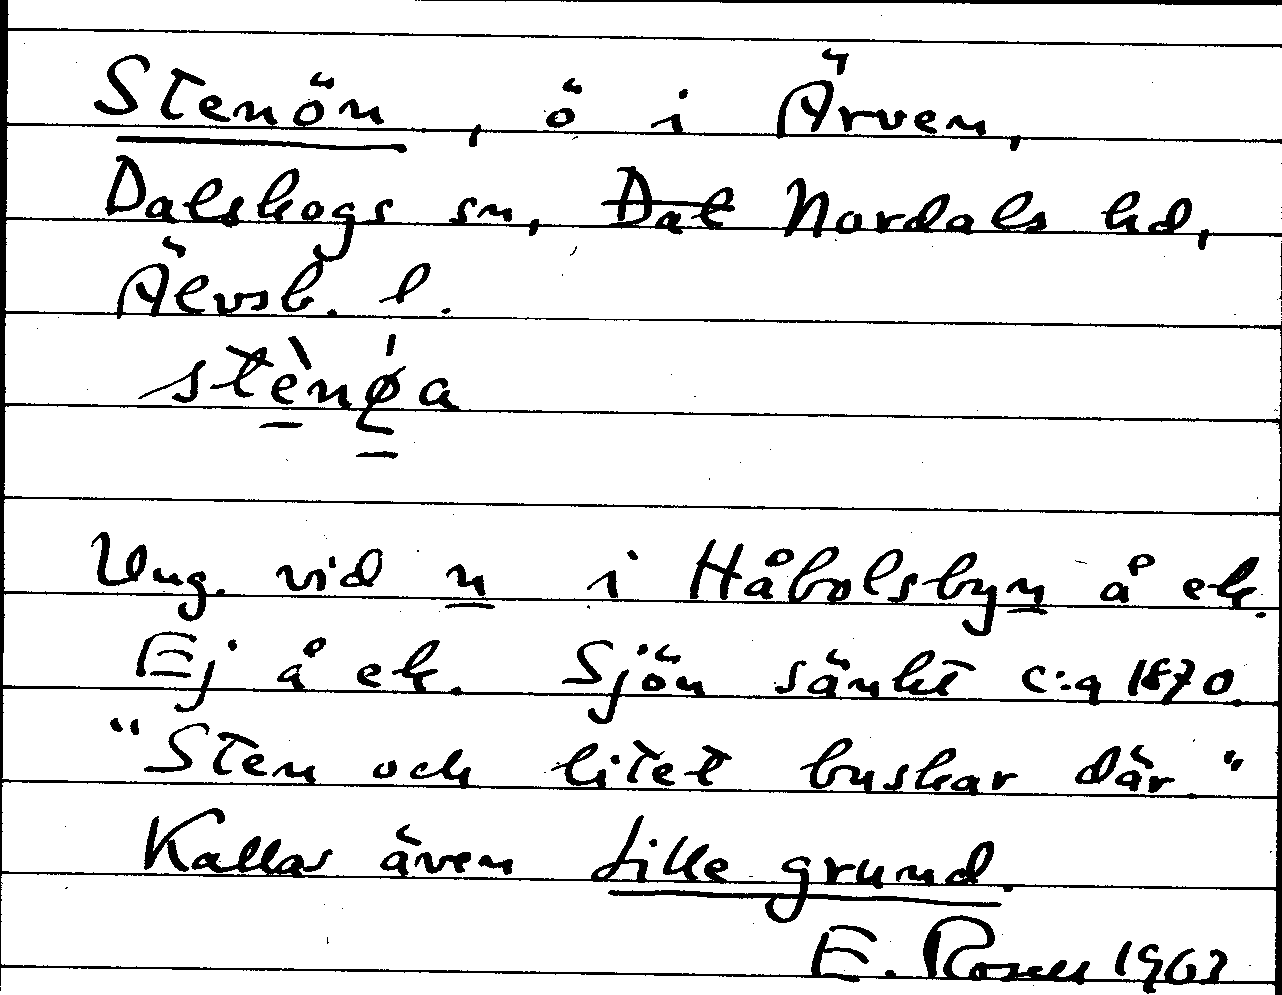 Stenön, ö i Ärven,
Dalskogs sn, Dal Nordals hd,
Älvsb. l.
stènǿa
Ung. vid n i Håbolsbyn å ek.
Ej å ek. Sjön sänkt c:a 1870.
"Sten och litet buskar där."
Kallas även Lille grund.
E. Rosell 1963